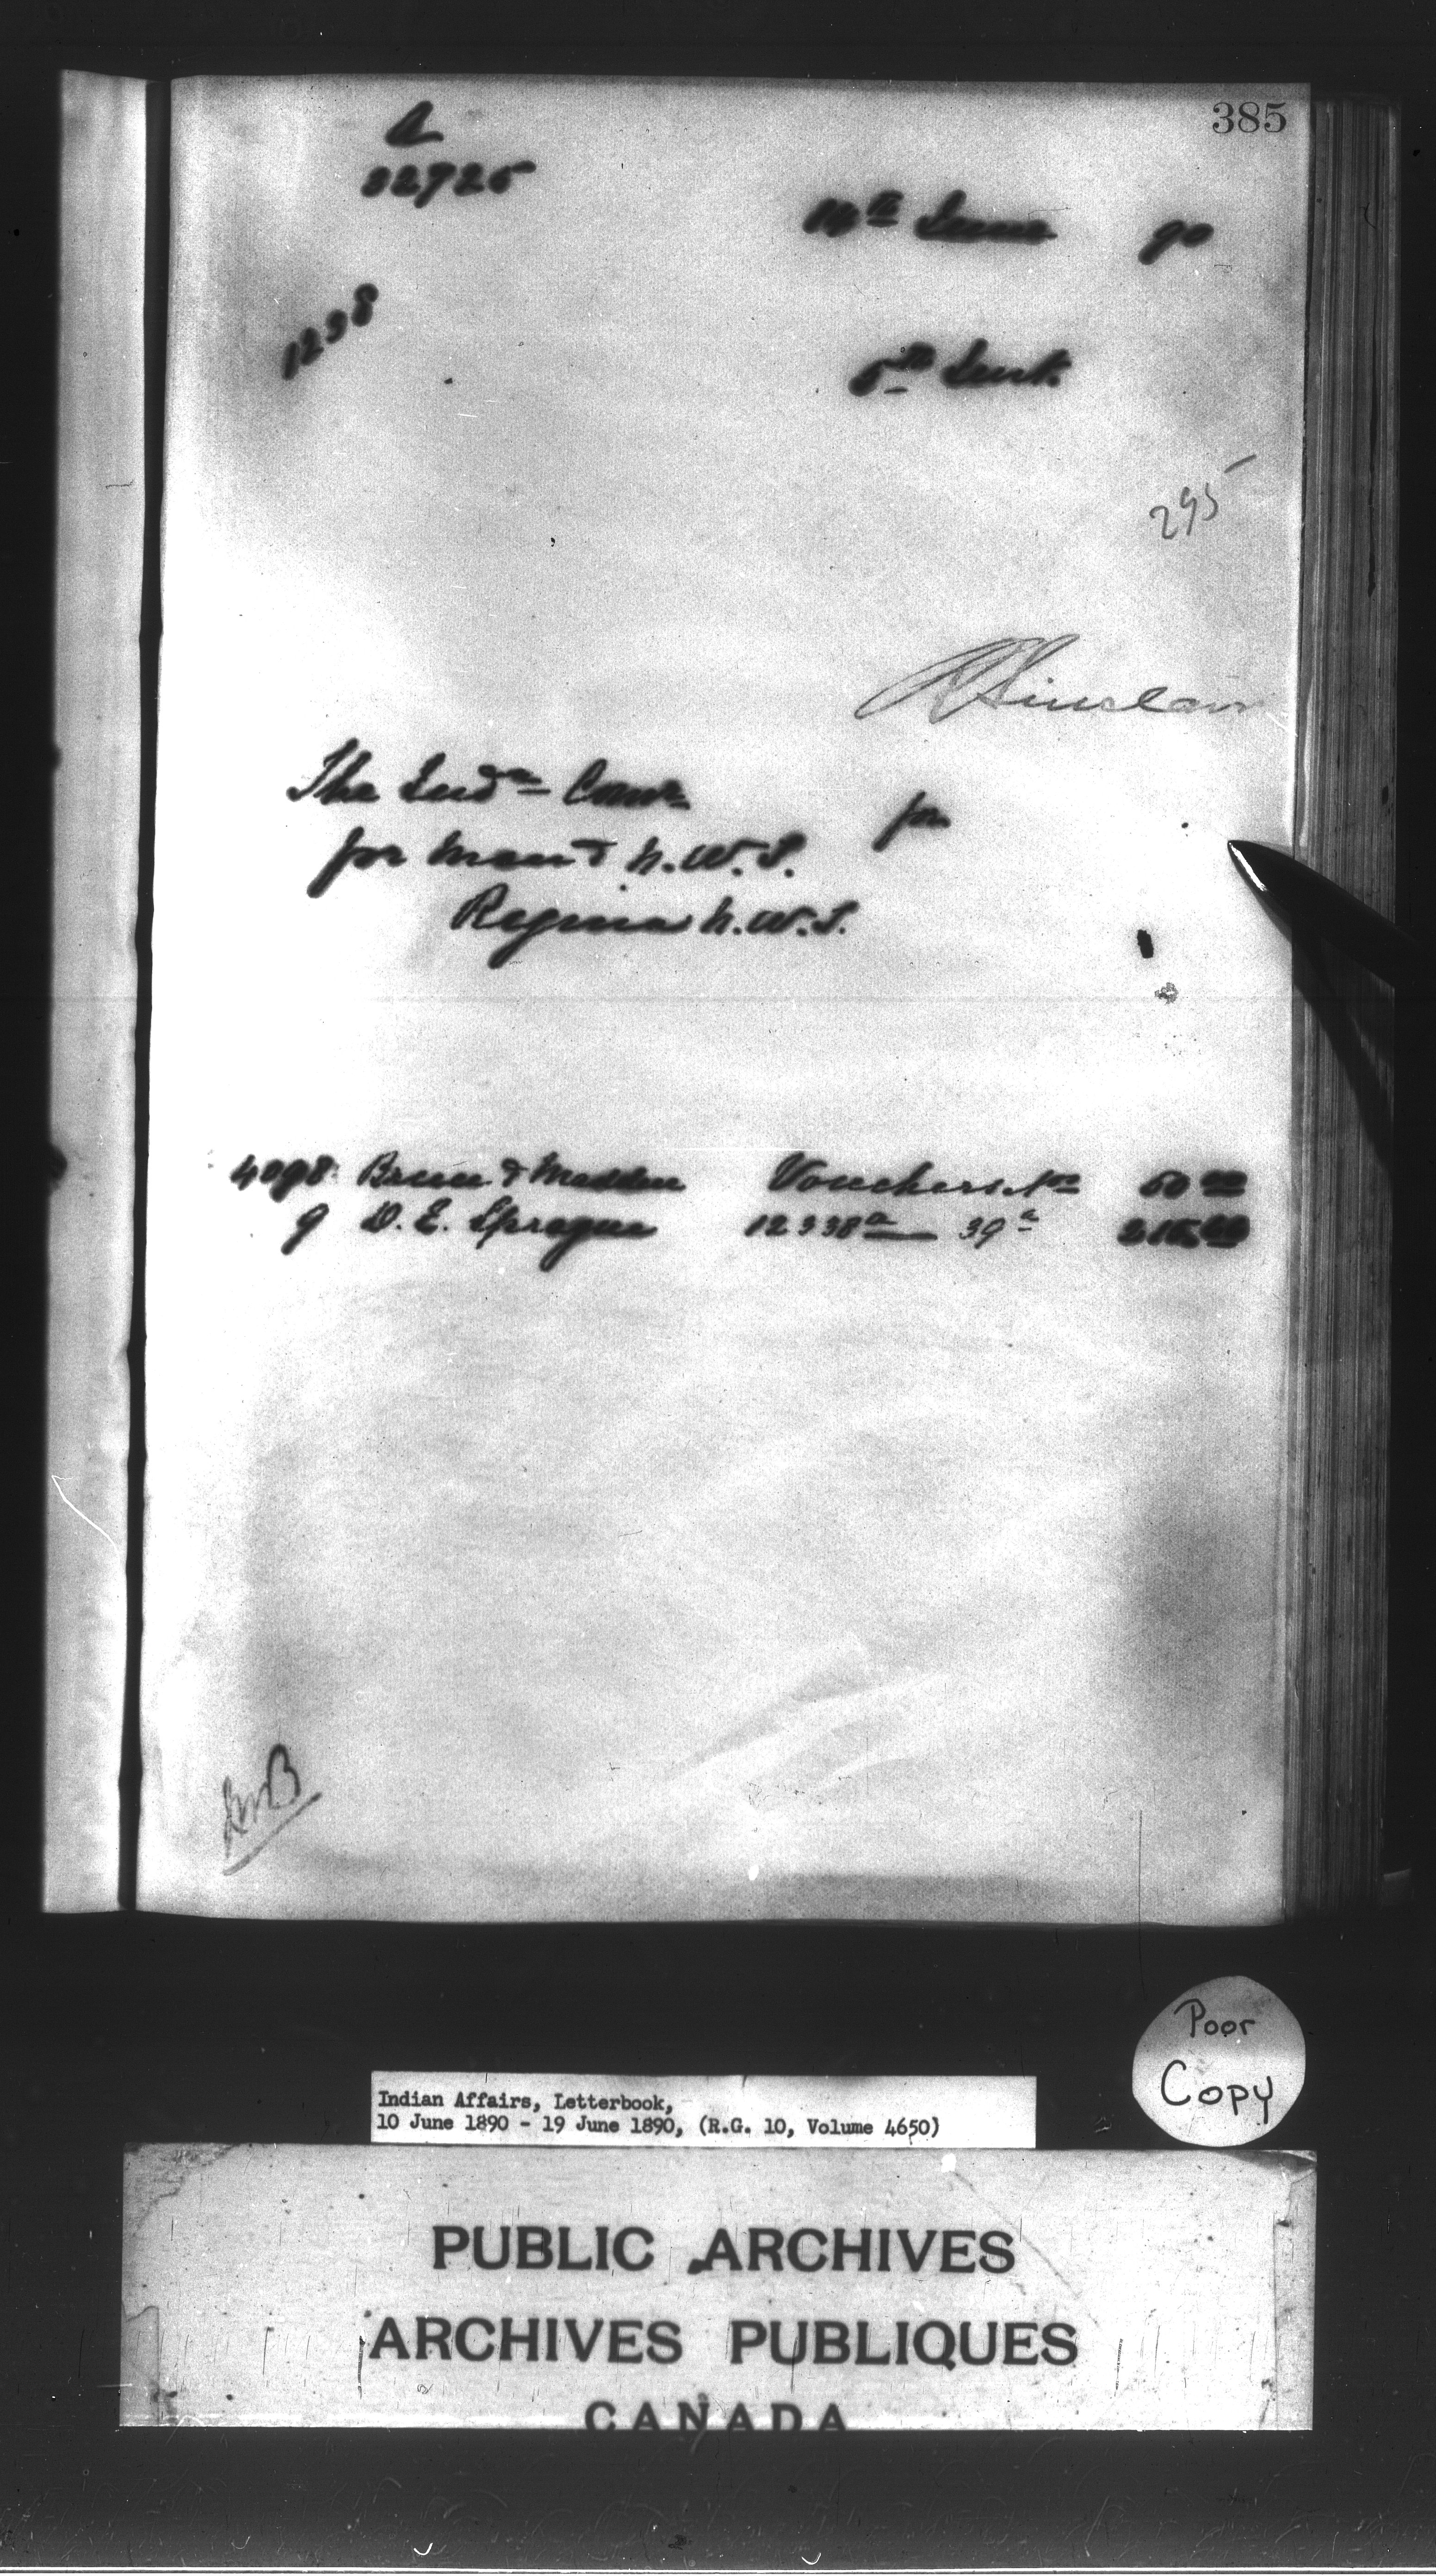 385
32925
14th June 90
1238
5th Inst.
295
Sinclair
The Indn Comr
for
for Man & N.W.T.
Regina N.W.T.
4098 & Madden Vouchers Nos 50 00
9 D. E. Sprague 12338a — 39a
Poor
Copy
Indian Affairs, Letterbook,
10 June 1890 - 19 June 1890, (R.G. 10, Volume 4650)
PUBLIC ARCHIVES
ARCHIVES PUBLIQUES
CANADA